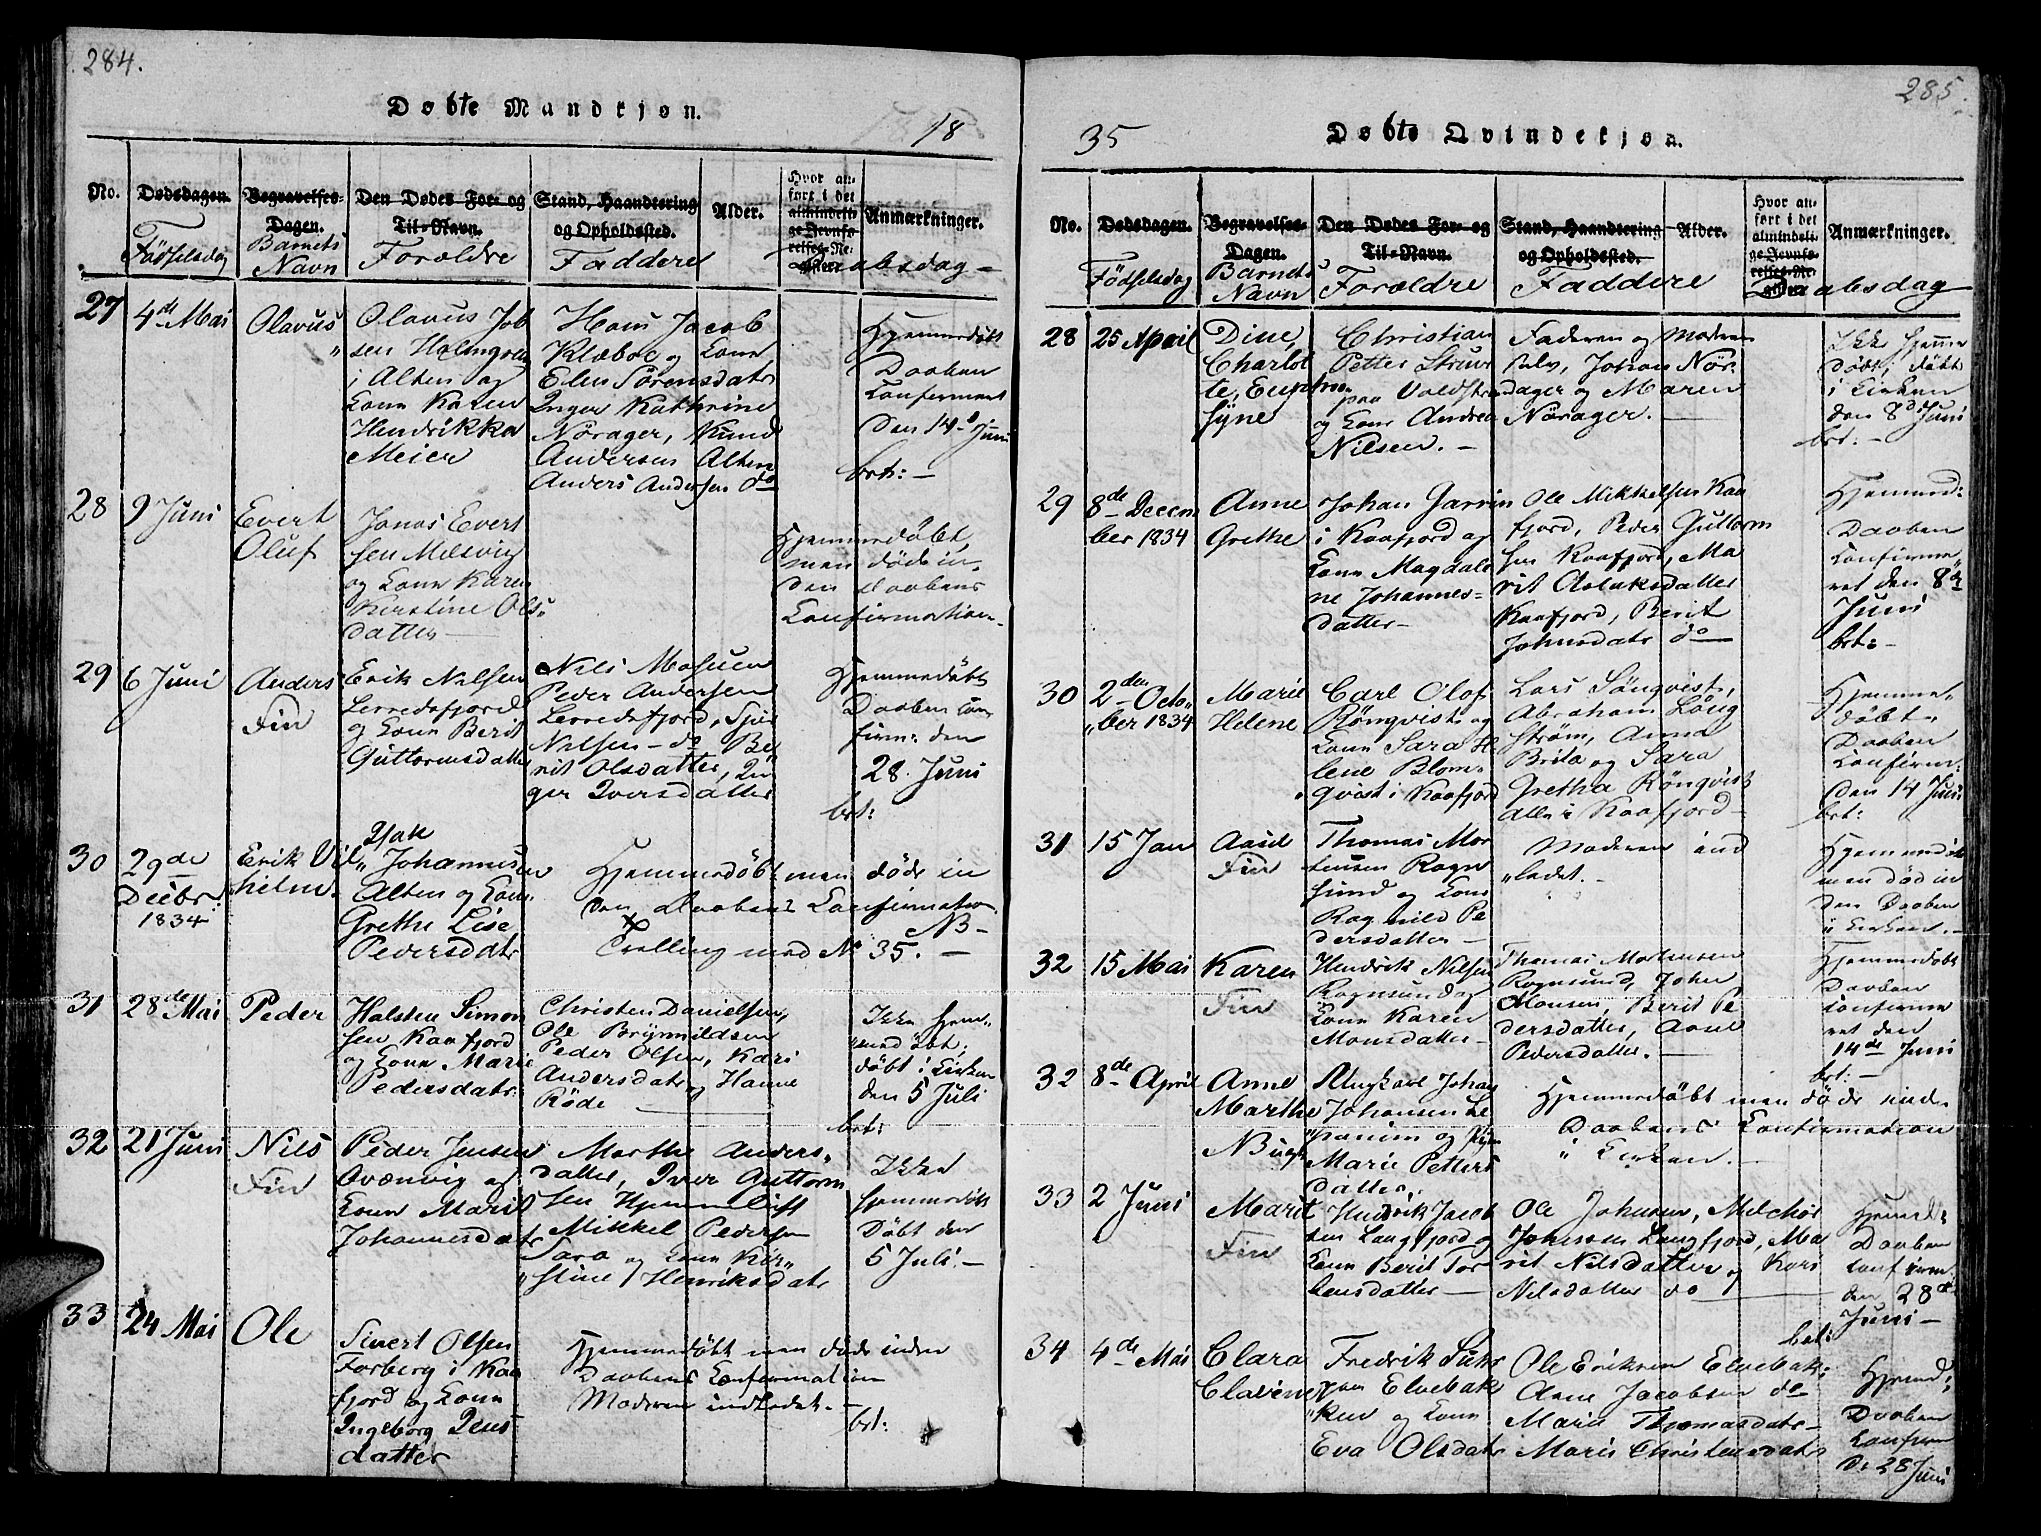 284.
Døbte Mandkjøn.
18
No.
Dødsdagen.
Fødselsdag
Begravelses-
Dagen.
Barnets
Navn
Den Dødes For- og
Til-Navn.
Forældre
Stand, Haandtering
og Opholdssted.
Faddere
Alder.
Hvor an-
ført i det
almindeli-
ge Jevnfø-
relses-Re-
gister.
Anmærkninger.
Daabsdag
27
4de Mai
Olavus
Olavus Job
sen Holmgren
i Alten og
Kone Karen
Hendrikka
Meier
Hans Jacob
Klæboe og Kone
Elen Sørensdatr
Inger Kathrine
Nørager, Knud
Andersen Alten
Anders Andersen do
Hjemmedøbt
Daaben
Confirmeret
den 14de Juni
brt:
28
9 Juni
Evert
Oluf
Jonas Evert
sen Melsvig
og Kone Karen
Kirstine Ols-
datter
Hjemmedøbt,
men døde in-
den Daabens
Confirmation
29
6 Juni
Anders
Fin
Erik Nilsen
Lerredsfjord
og Kone Berit
Guttormsdatter
Nils
Peder Andersen
Lerredsfjord,
Nilsen do Be
rit Olsdatter, In
ger Iversdatter
Hjemmedøbt
Daaben Con
firm: den
28. Juni
brt:
30
29de
Decbr.
1834
Erik Vil
helm.
Isak
Johannesen
Alten og Kone
Grethe Lise
Pedersdatr
Hjemmedøbt men døde in
den Daabens Confirmation.
NB
Tvilling med No 35.
31
28de Mai
Peder
Halsten Simon
sen Kaafjord
og Kone Marie
Pedersdatr.
Christen Danielsen,
Ole Brynnildsen
Peder Olsen, Kari
Andersdatr og Hanne
Røde
Ikke hjem-
medøbt,
døbt i Kirken
den 5 Juli
brt:
32
21 Juni
Nils
Fin
Peder Jensen
Qvænvig og
Kone Marit
Johannesdatr
Marthe Anders-
datter, Iver Guttorm
sen Hjemmeluft
Mikkel Pedersen
Sara og Kone Kir-
stine Henriksdatr
Ikke
hjemmedøbt
Døbt den
5 Juli.
33
24 Mai
Ole
Sivert Olsen
Forberg i Kaa
fjord og Kone
Ingeborg Jens
datter
Hjemmedøbt men døde inden
Daabens Confirmation
Moderen indledet.
brt:
285.
35
Døbte Qvindekjøn.
No.
Dødsdagen.
Fødselsdag
Begravelses-
Dagen.
Barnets
Navn
Den Dødes For- og
Til-Navn.
Forældre
Stand, Haandtering
og Opholdssted.
Faddere
Alder.
Hvor an-
ført i det
almindeli-
ge Jevnfø-
relses-Re-
gister.
Anmærkninger.
Daabsdag
28
25 April
Dine,
Charlot
te, Euphro
syne
Christian
Petter Struve
paa Voldstra
og Kone Andrea
Nilsen.
Faderen og Moderen
selv, Johan Nør-
dager og Maren
Nørager.
Ikke hjemme
døbt, døbt
i Kirken
den 8de Juni
brt:
29
8de Decem
ber 1834
Anne
Grethe
Johan
i Kaafjord og
Kone Magdale
ne Johannes-
datter
Ole Mikkelsen Kaa
fjord, Peder Guttorm
sen Kaafjord, Ma
rit Aslaksdatter
Kaafjord, Berit
Johnsdatr do
Hjemmed:
Daaben
Confirme
ret den 8de
Juni
brt:
30
2den Octo
ber 1834
Marie
Helene
Carl Olof
Rønqvist og
Kone Sara He
lene Blom-
qvist i Kaafjord
Lars Sønqvist,
Abraham Lång
strøm, Anna
Brita og Sara
Gretha Rönqvist
alle i Kaafjord
Hjemme-
døbt
Daaben
Confirm:
den 14 Juni
brt:
31
15 Jan
Aasel
Fin
Thomas Mor
tensen Rogn
sund og Kone
Ragnild Pe
dersdatter
Moderen ind
ledet.
Hjemmedøbt
men død in
den Daaben
i Kirken.
32
15 Mai
Karen
Fin
Hendrik Nilsen
Rognsund og
Kone Karen
Monsdatter
Thomas Mortensen
Rognsund, John
Hansen, Berit Pe
dersdatter, Aane
Pedersdatter.
Hjemmedøbt
Daaben
Confirme
ret den
14de Juni
brt:
32
8de April
Anne
Marthe
Ungkarl Johan
Johansen
og
Marie Petters
datter
Hjemmedøbt men døde inden
Daabens Confirmation
i Kirken.
33
2 Juni
Marit
Fin
Hendrik Jacob
sen Langfjord og
Kone Berit Tor
bensdatter
Ole Johnsen, Melchior
Johnsen Langfjord, Ma
rit Nilsdatter og Kari
Nilsdatter do
Hjemd:
Daaben
Confirm.
den 28de
Juni
brt:
34
4de Mai
Clara
Clavine
Fredrik Suhr
paa Elvebak
ken og Kone
Eva Olsdatr
Ole Eriksen Elvebak-
Aane Jacobsen do
Marie Thomasdatr
Maris Christensdatr
Hjemd:
Daaben
Confirm
D. 28 Juni